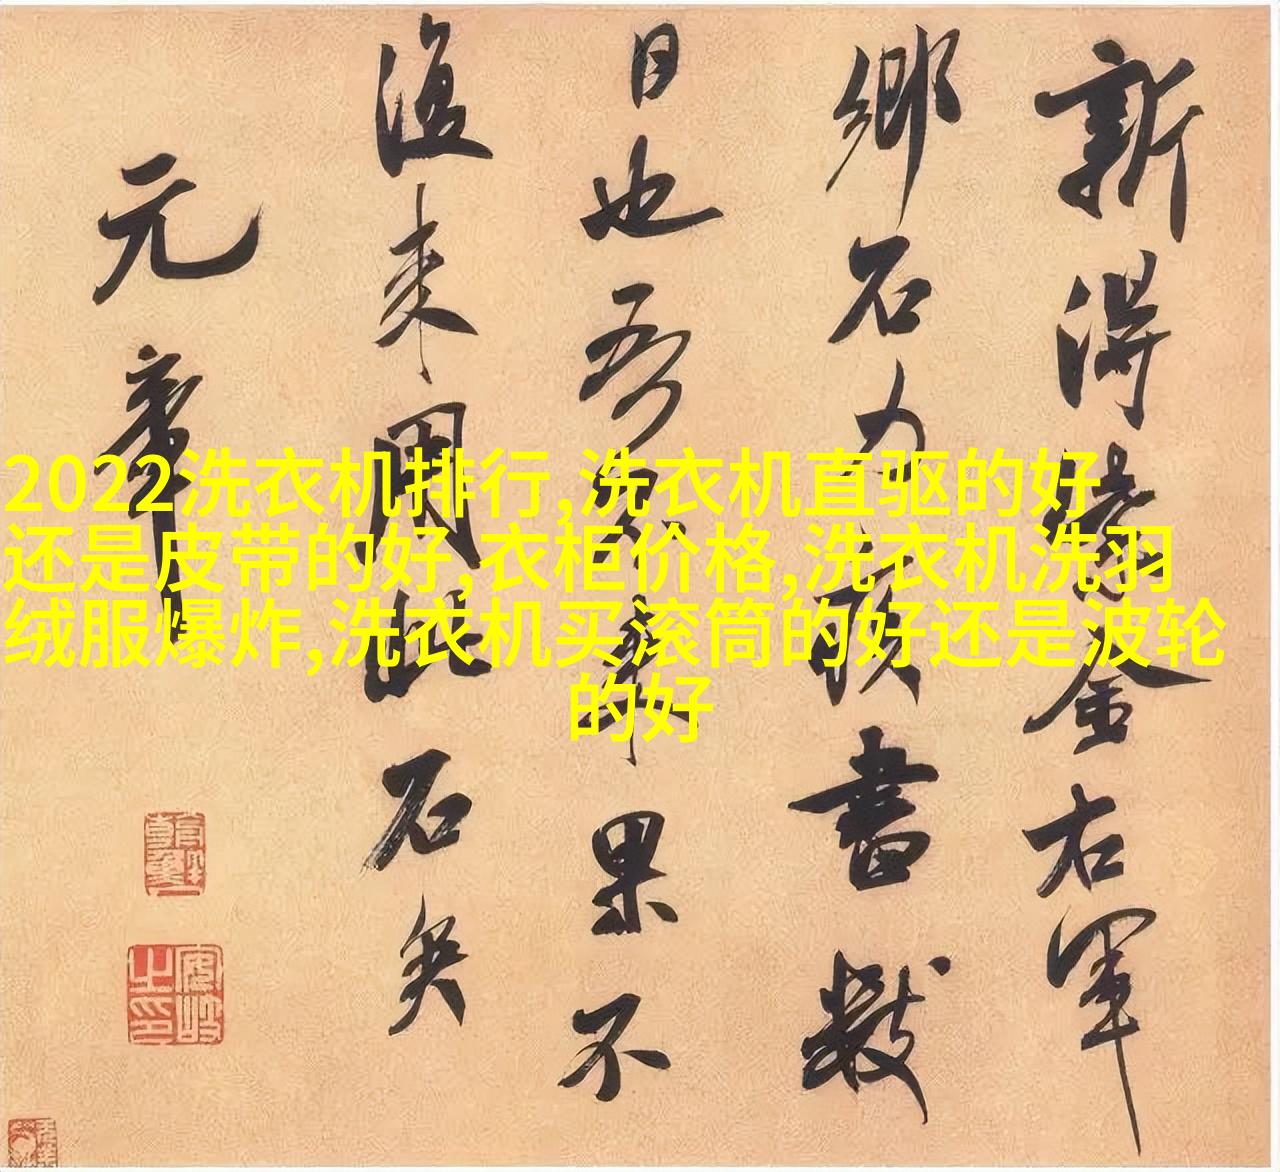 新得紫金右軍
鄉石力疾書數
日也吾不来果不
復来用此石矣
元章
2022洗衣机排行,洗衣机直驱的好
还是皮带的好,衣柜价格,洗衣机洗羽
绒服爆炸,洗衣机买滚筒的好还是波轮
的好